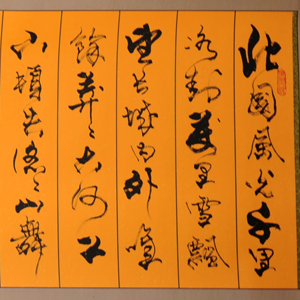 北國風光千里
冰封萬里雪飄
望長城内外惟
餘莽々大河上
下頓失滔々山舞